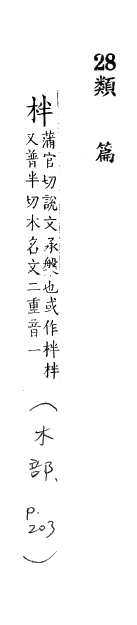 28類篇
柈 蒲官切説文承槃也或作柈柈
又普半切木名文二重音一
(木部、
p.203)